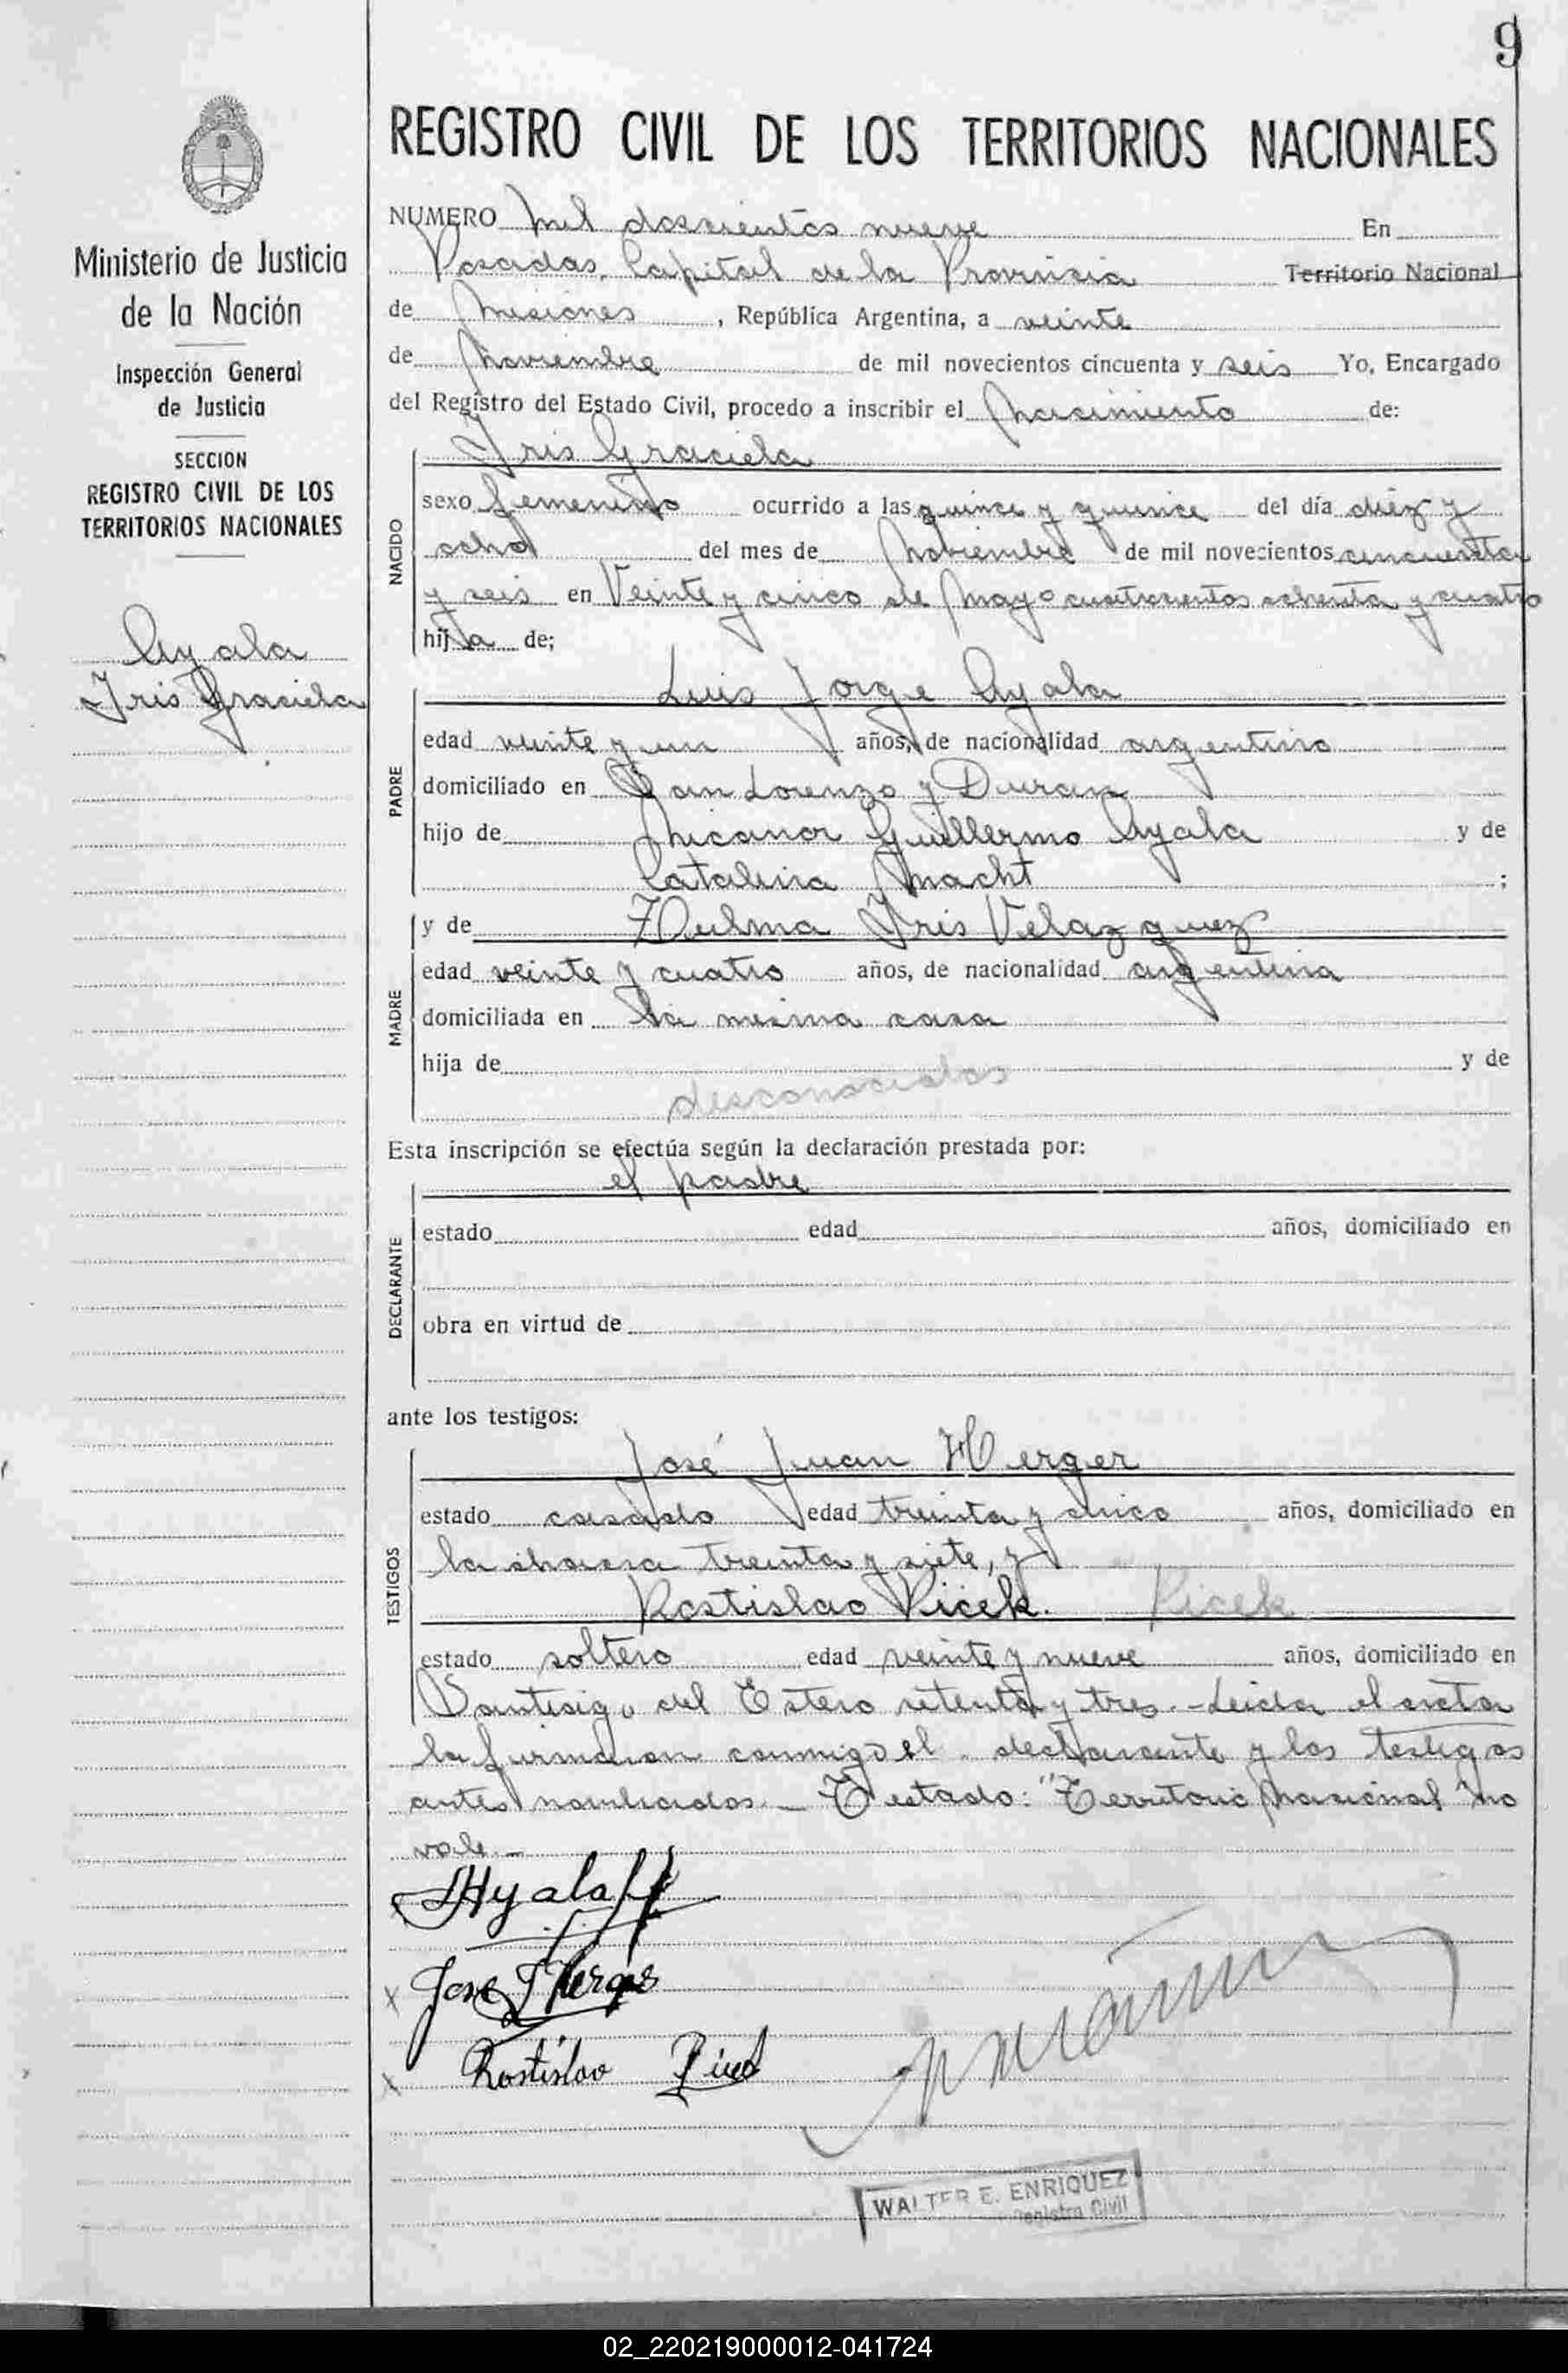 9
REGISTRO CIVIL DE LOS TERRITORIOS NACIONALES
Ministerio de Justicia
de la Nación
Inspección General
de Justicia
SECCION
REGISTRO CIVIL DE LOS
TERRITORIOS NACIONALES
Ayala
Iris Graciela
NUMERO mil doscientos nueve En
Posadas, Capital de la Provincia Territorio Nacional
de Misiones, República Argentina, a veinte
de Noviembre de mil novecientos cincuenta y seis Yo, Encargado
del Registro del Estado Civil, procedo a inscribir el Nacimiento de:
Iris Graciela
NACIDO
sexo femenino ocurrido a las quince y quince del día diez y
ocho del mes de Noviembre de mil novecientos cincuenta
y seis en Veinte y cinco de Mayo cuatrocientos ochenta y cuatro
hija de;
PADRE
Luis Jorge Ayala
edad veinte y un años, de nacionalidad argentino
domiciliado en San Lorenzo y Duran
hijo de Nicanor Guillermo Ayala y de
Catalina Macht ;
MADRE
y de Zulma Iris Velazquez
edad veinte y cuatro años, de nacionalidad argentina
domiciliada en la misma casa
hija de y de
desconocidos
Esta inscripción se efectúa según la declaración prestada por:
el padre
DECLARANTE
estado edad años, domiciliado en
obra en virtud de
ante los testigos:
TESTIGOS
José Juan Herger
estado casado edad treinta y cinco años, domiciliado en
la chacra treinta y siete, y
Rostislao Picek. Picek
estado soltero edad veinte y nueve años, domiciliado en
Santiago del Estero setenta y tres.- Leida el acta
la firmaron conmigo el declarante y los testigos
antes nombrados.- Testado: "Territorio Nacional" no
vale.-
LAyala
x Jose J Herger
x Rostislao Picek
WALTER E. ENRIQUEZ
Registro Civil
02_220219000012-041724